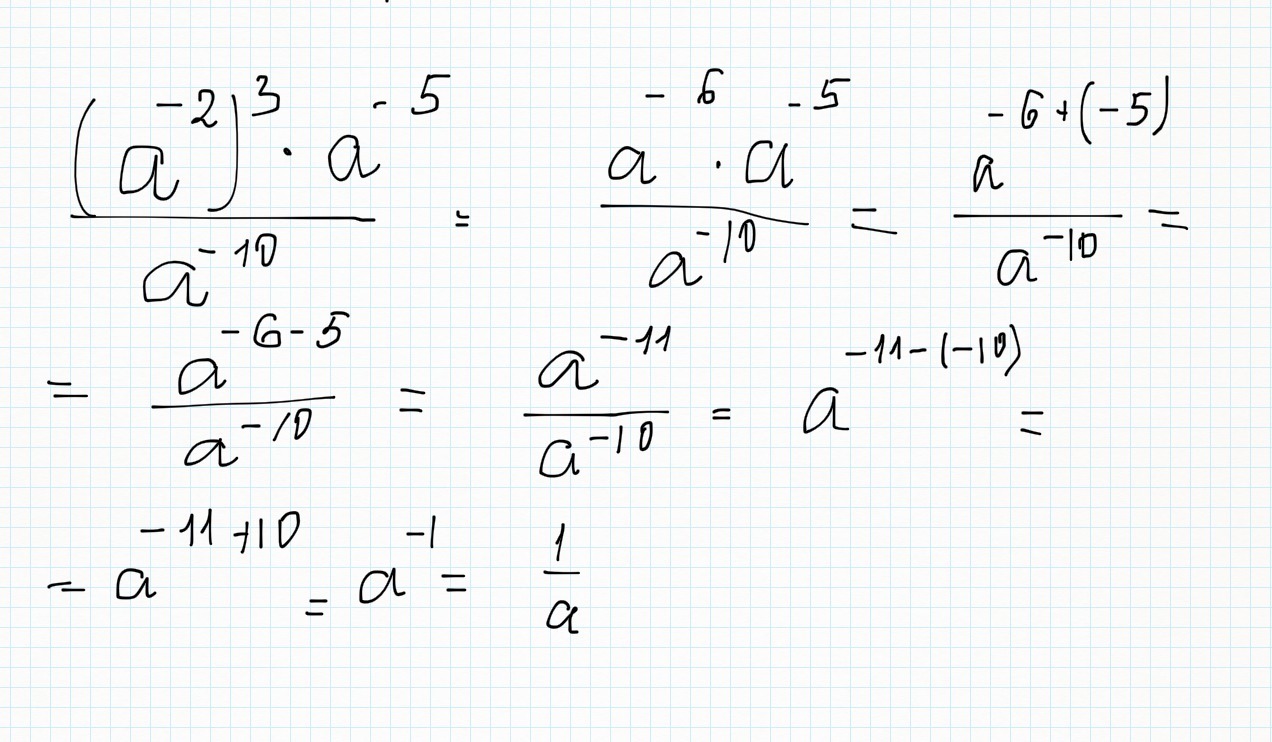 \frac{(a^{-2})^3 \cdot a^{-5}}{a^{-10}} = \frac{a^{-6} \cdot a^{-5}}{a^{-10}} = \frac{a^{-6+(-5)}}{a^{-10}} =
= \frac{a^{-6-5}}{a^{-10}} = \frac{a^{-11}}{a^{-10}} = a^{-11-(-10)} =
= a^{-11+10} = a^{-1} = \frac{1}{a}